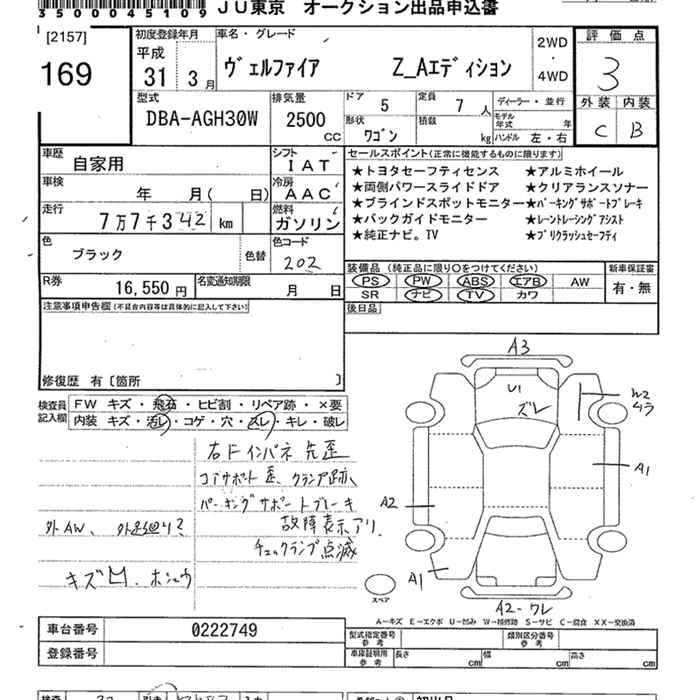 35000451​09 JU東京 オークション出品申込書
[2157]
169
初度登録年月
平成
31 3月
車名・グレード
ヴェルファイア Z_Aエディション
2WD
・
4WD
評価点
3
外装 内装
C B
型式
DBA-AGH30W
排気量
2500
CC
ドア 5
定員 7 人
形状 ワゴン
積載 kg
ディーラー・並行
モデル年式 年
ハンドル 左・右
車歴
自家用
シフト
IAT
車検
年 月( 日)
冷房
AAC
走行
7万7千342 km
燃料
ガソリン
色
ブラック
色替
色コード
202
R券
16,550円
名変通知期限
月 日
セールスポイント(正常に機能するものに限ります)
★トヨタセーフティセンス ★アルミホイール
★両側パワースライドドア ★クリアランスソナー
★ブラインドスポットモニター ★パーキングサポートブレーキ
★バックガイドモニター ★レーントレーシングアシスト
★純正ナビ。TV ★プリクラッシュセーフティ
装備品(純正品に限り○をつけてください)
PS PW ABS エアB AW
SR ナビ TV カワ
新車保証書
有・無
後日品
注意事項申告欄(不具合内容等は具体的に記入して下さい)
修復歴 有〔箇所 〕
検査員
記入欄
FW キズ・飛石・ヒビ割・リペア跡・×要
内装 キズ・汚レ・コゲ・穴・スレ・キレ・破レ
右Fインパネ先歪
コアサポート歪、クランプ跡、
パーキングサポートブレーキ
故障表示アリ.
チェックランプ点滅
外AW、
キズ凹.ホシュウ
A3
U1
ズレ
W2
ムラ
A1
A2
A1
A2-ワレ
スペア
A-キズ E-エクボ U-凹み W-補修跡 S-サビ C-腐食 XX-交換済
車台番号
0222749
登録番号
型式指定番号
参考
類別区分番号
参考
車庫証明用
参考
長さ cm 幅 cm 高さ cm